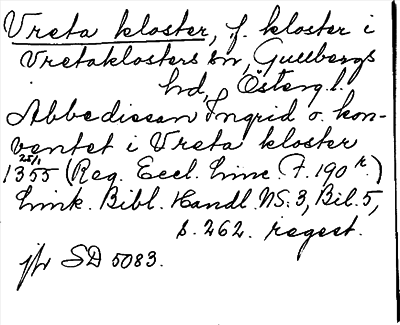 Vreta kloster, f. kloster i
Vretaklosters sn, Gullbergs
hd, Österg.l.
Abbedissan Ingrid o. kon-
ventet i Vreta kloster
25/1
1355 (Reg. Eccl. Linc. F. 190 r.)
Link. Bibl. Handl. NS. 3, Bil. 5,
s. 262. regest.
jfr SD 5083.